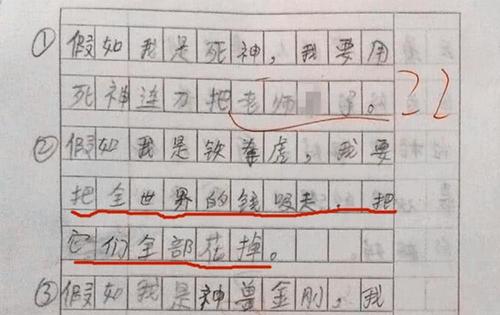 ① 假如我是死神,我要用
死神连刀把老师了。22
② 假如我是铁拳虎,我要
把全世界的钱吸夫,把
它们全部花掉。
③ 假如我是神兽金刚,我